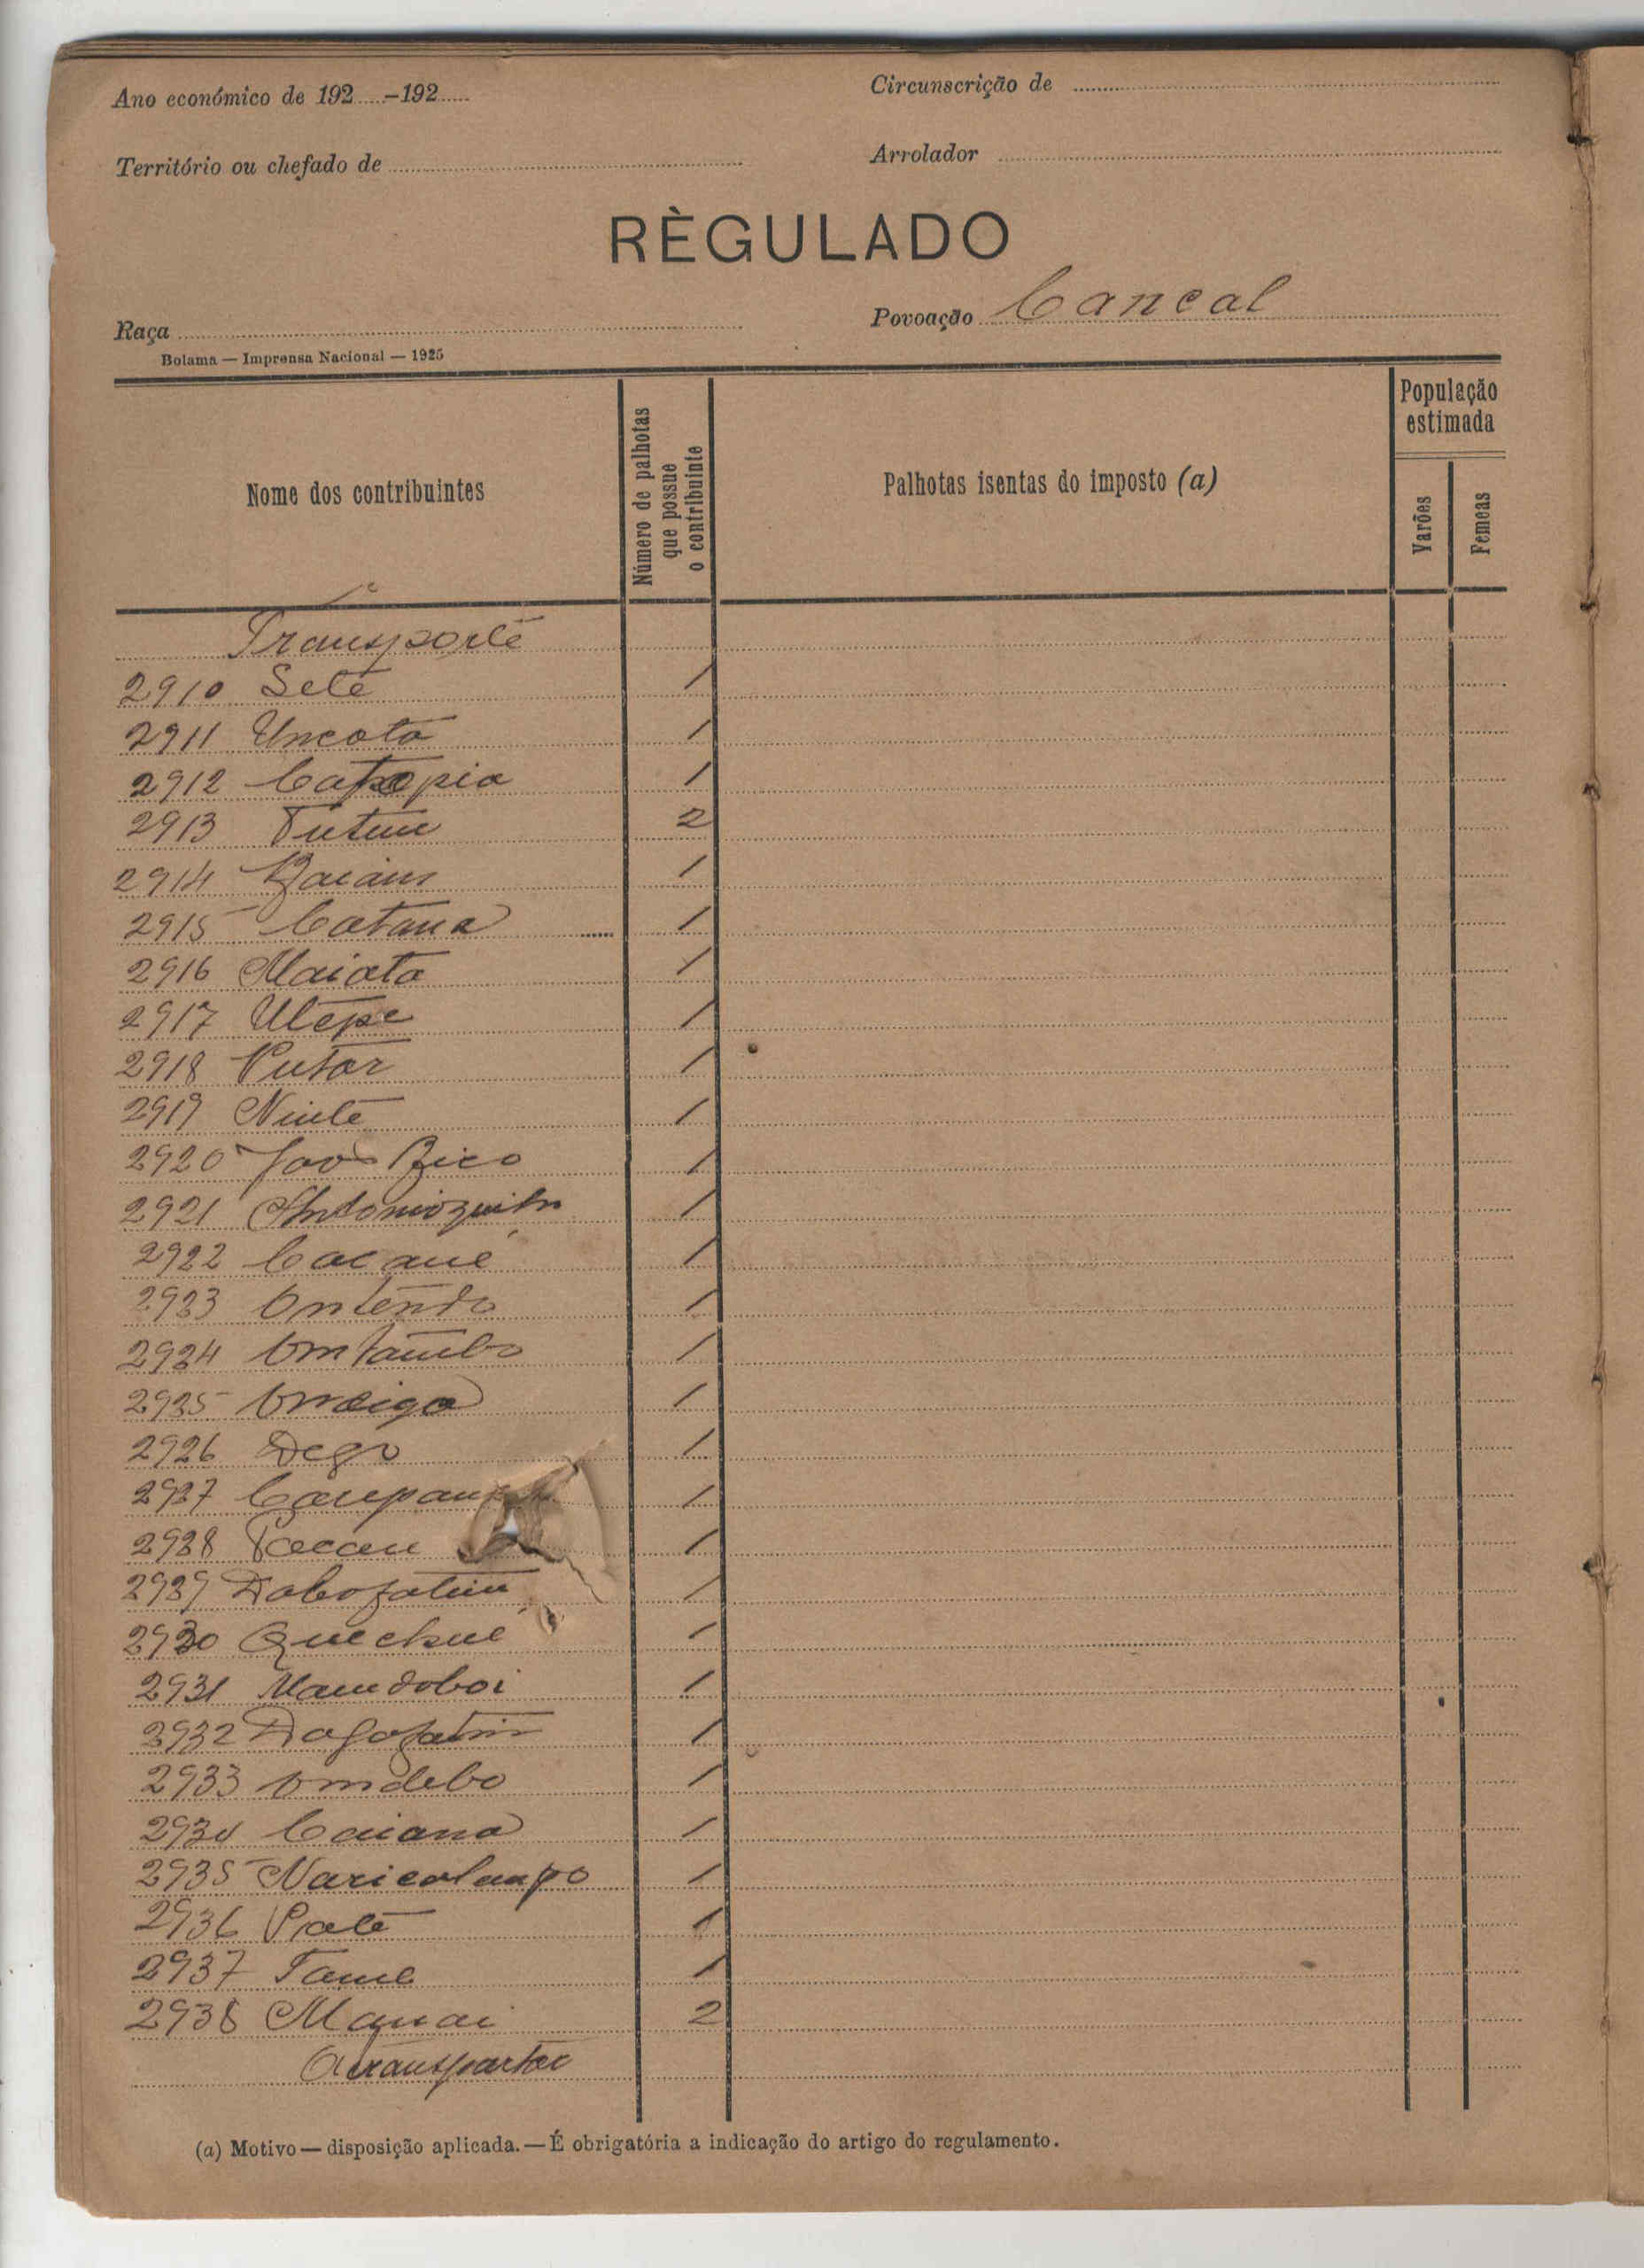 Ano económico de 192.....-192.....
Circunscrição de
Território ou chefado de
Arrolador
RÈGULADO
Raça
Povoação Caneal
Bolama — Imprensa Nacional — 1925
Nome dos contribuintes
Número de palhotas que possue o contribuinte
Palhotas isentas do imposto (a)
População estimada
Varões
Femeas
Transporte
2910 Sete 1
2911 Uncota 1
2912 1
2913 Tutum 2
2914 1
2915 Catana 1
2916 Maiata 1
2917 Utepe 1
2918 Putar 1
2919 Niute 1
2920 João Bico 1
2921 Antoniozinho 1
2922 Cacaué 1
2923 Ontendo 1
2924 Omtambo 1
2925 1
2926 Dego 1
2927 1
2928 1
2929 1
2930 Quechué 1
2931 Mamdoboi 1
2932 1
2933 Omdebo 1
2934 Caiana 1
2935 1
2936 Pate 1
2937 Tame 1
2938 Manai 2
A transportar
(a) Motivo — disposição aplicada. — É obrigatória a indicação do artigo do regulamento.